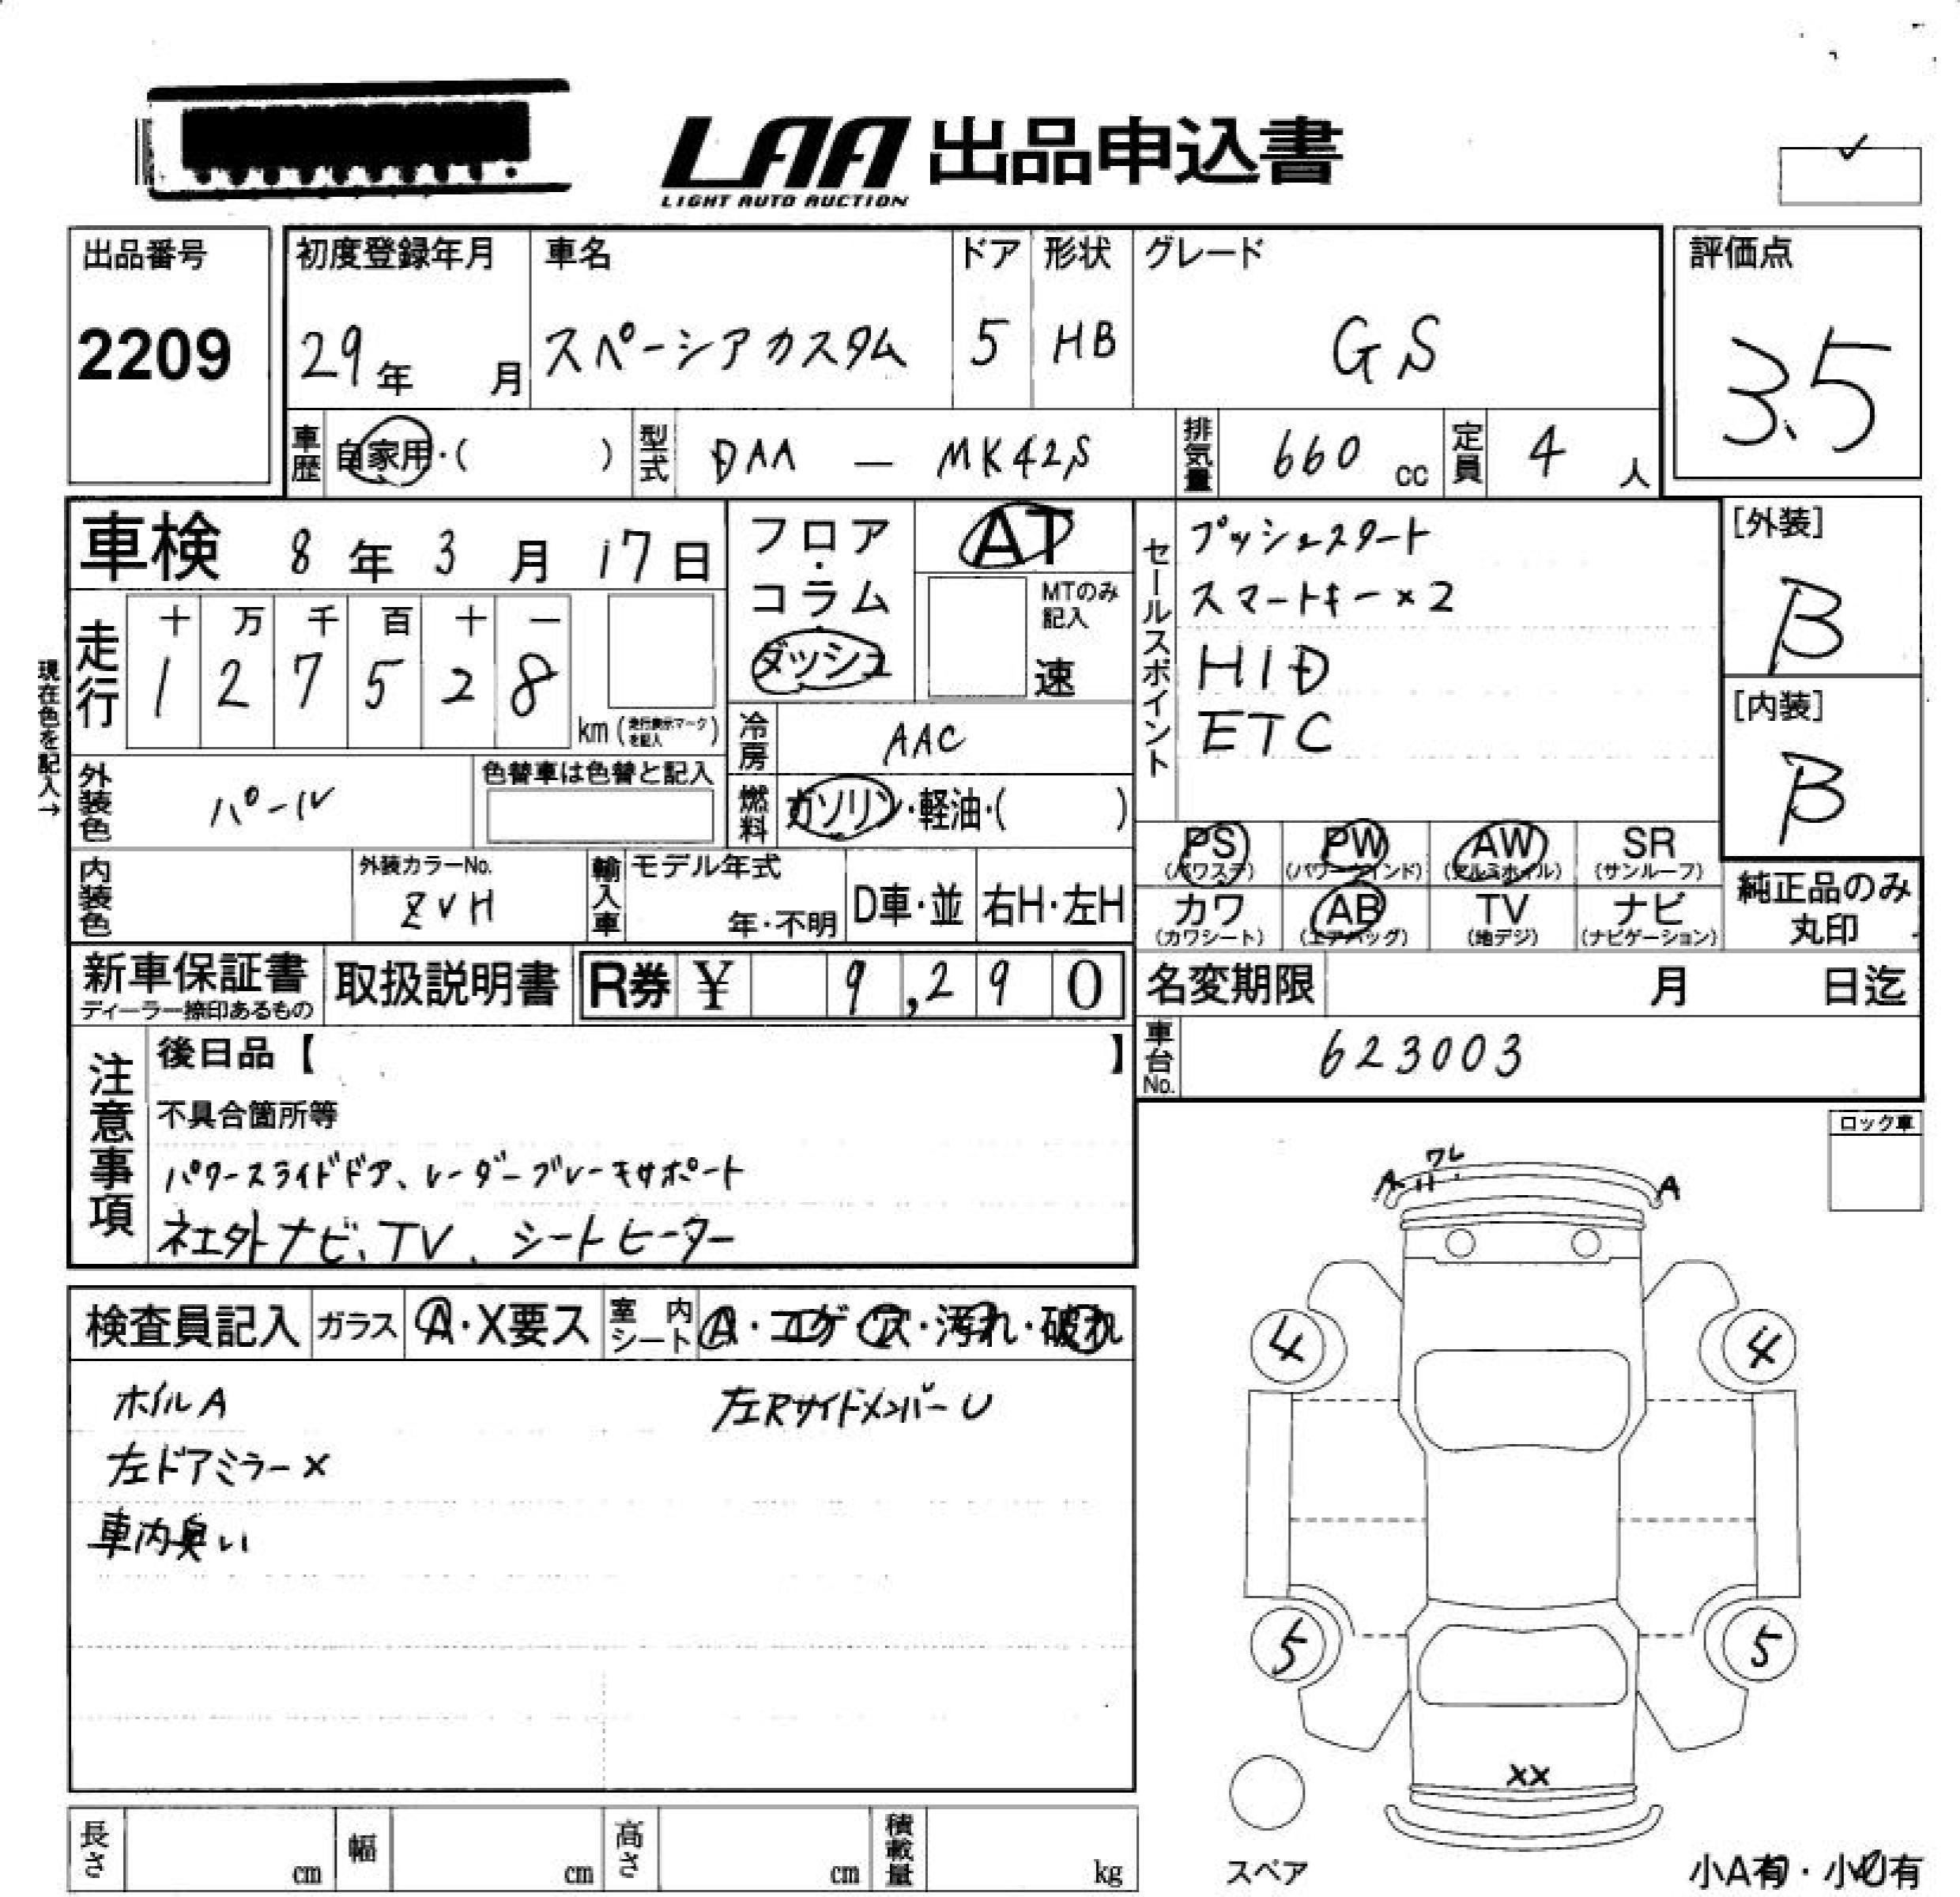 LAA 出品申込書
LIGHT AUTO AUCTION
出品番号
2209
初度登録年月
29年 月
車名
スペーシアカスタム
ドア
5
形状
HB
グレード
GS
評価点
3.5
車歴
自家用・( )
型式
DAA — MK42S
排気量
660 cc
定員
4 人
車検 8年 3月 17日
走行
十 万 千 百 十 一
1 2 7 5 2 8
km (走行表示マークを記入)
現在色を記入→
外装色
パール
色替車は色替と記入
内装色
外装カラーNo.
ZVH
輸入車
モデル年式
年・不明
D車・並
右H・左H
フロア・コラム・ダッシュ
AT
MTのみ記入
速
冷房
AAC
燃料
ガソリン・軽油・( )
セールスポイント
プッシュスタート
スマートキー×2
HID
ETC
[外装]
B
[内装]
B
PS (パワステ)
PW (パワーウインド)
AW (アルミホイル)
SR (サンルーフ)
カワ (カワシート)
AB (エアバッグ)
TV (地デジ)
ナビ (ナビゲーション)
純正品のみ丸印
新車保証書
ディーラー捺印あるもの
取扱説明書
R券 ¥ 9,290
名変期限 月 日迄
車台No.
623003
注意事項
後日品【 】
不具合箇所等
パワースライドドア、レーダーブレーキサポート
社外ナビ、TV、シートヒーター
ロック車
検査員記入
ガラス
A・X要ス
室内シート
A・コゲ・ス・汚れ・破れ
ホイルA
左ドアミラーX
車内臭い
左RサイドメンバーU
A ワレ A
4 4
5 5
XX
スペア
小A有・小U有
長さ cm
幅 cm
高さ cm
積載量 kg